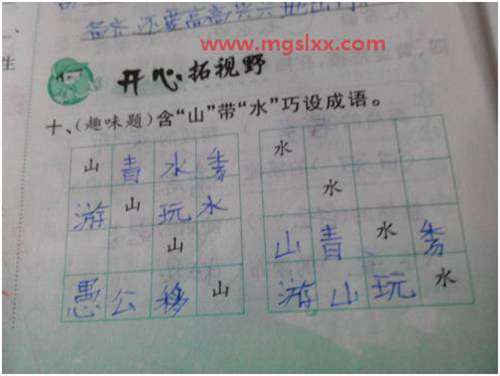 www.mgslxx.com
生
开心拓视野
十、(趣味题)含“山”带“水”巧设成语。
山青水秀
游山玩水
山
愚公移山
水
水
山青水秀
游山玩水